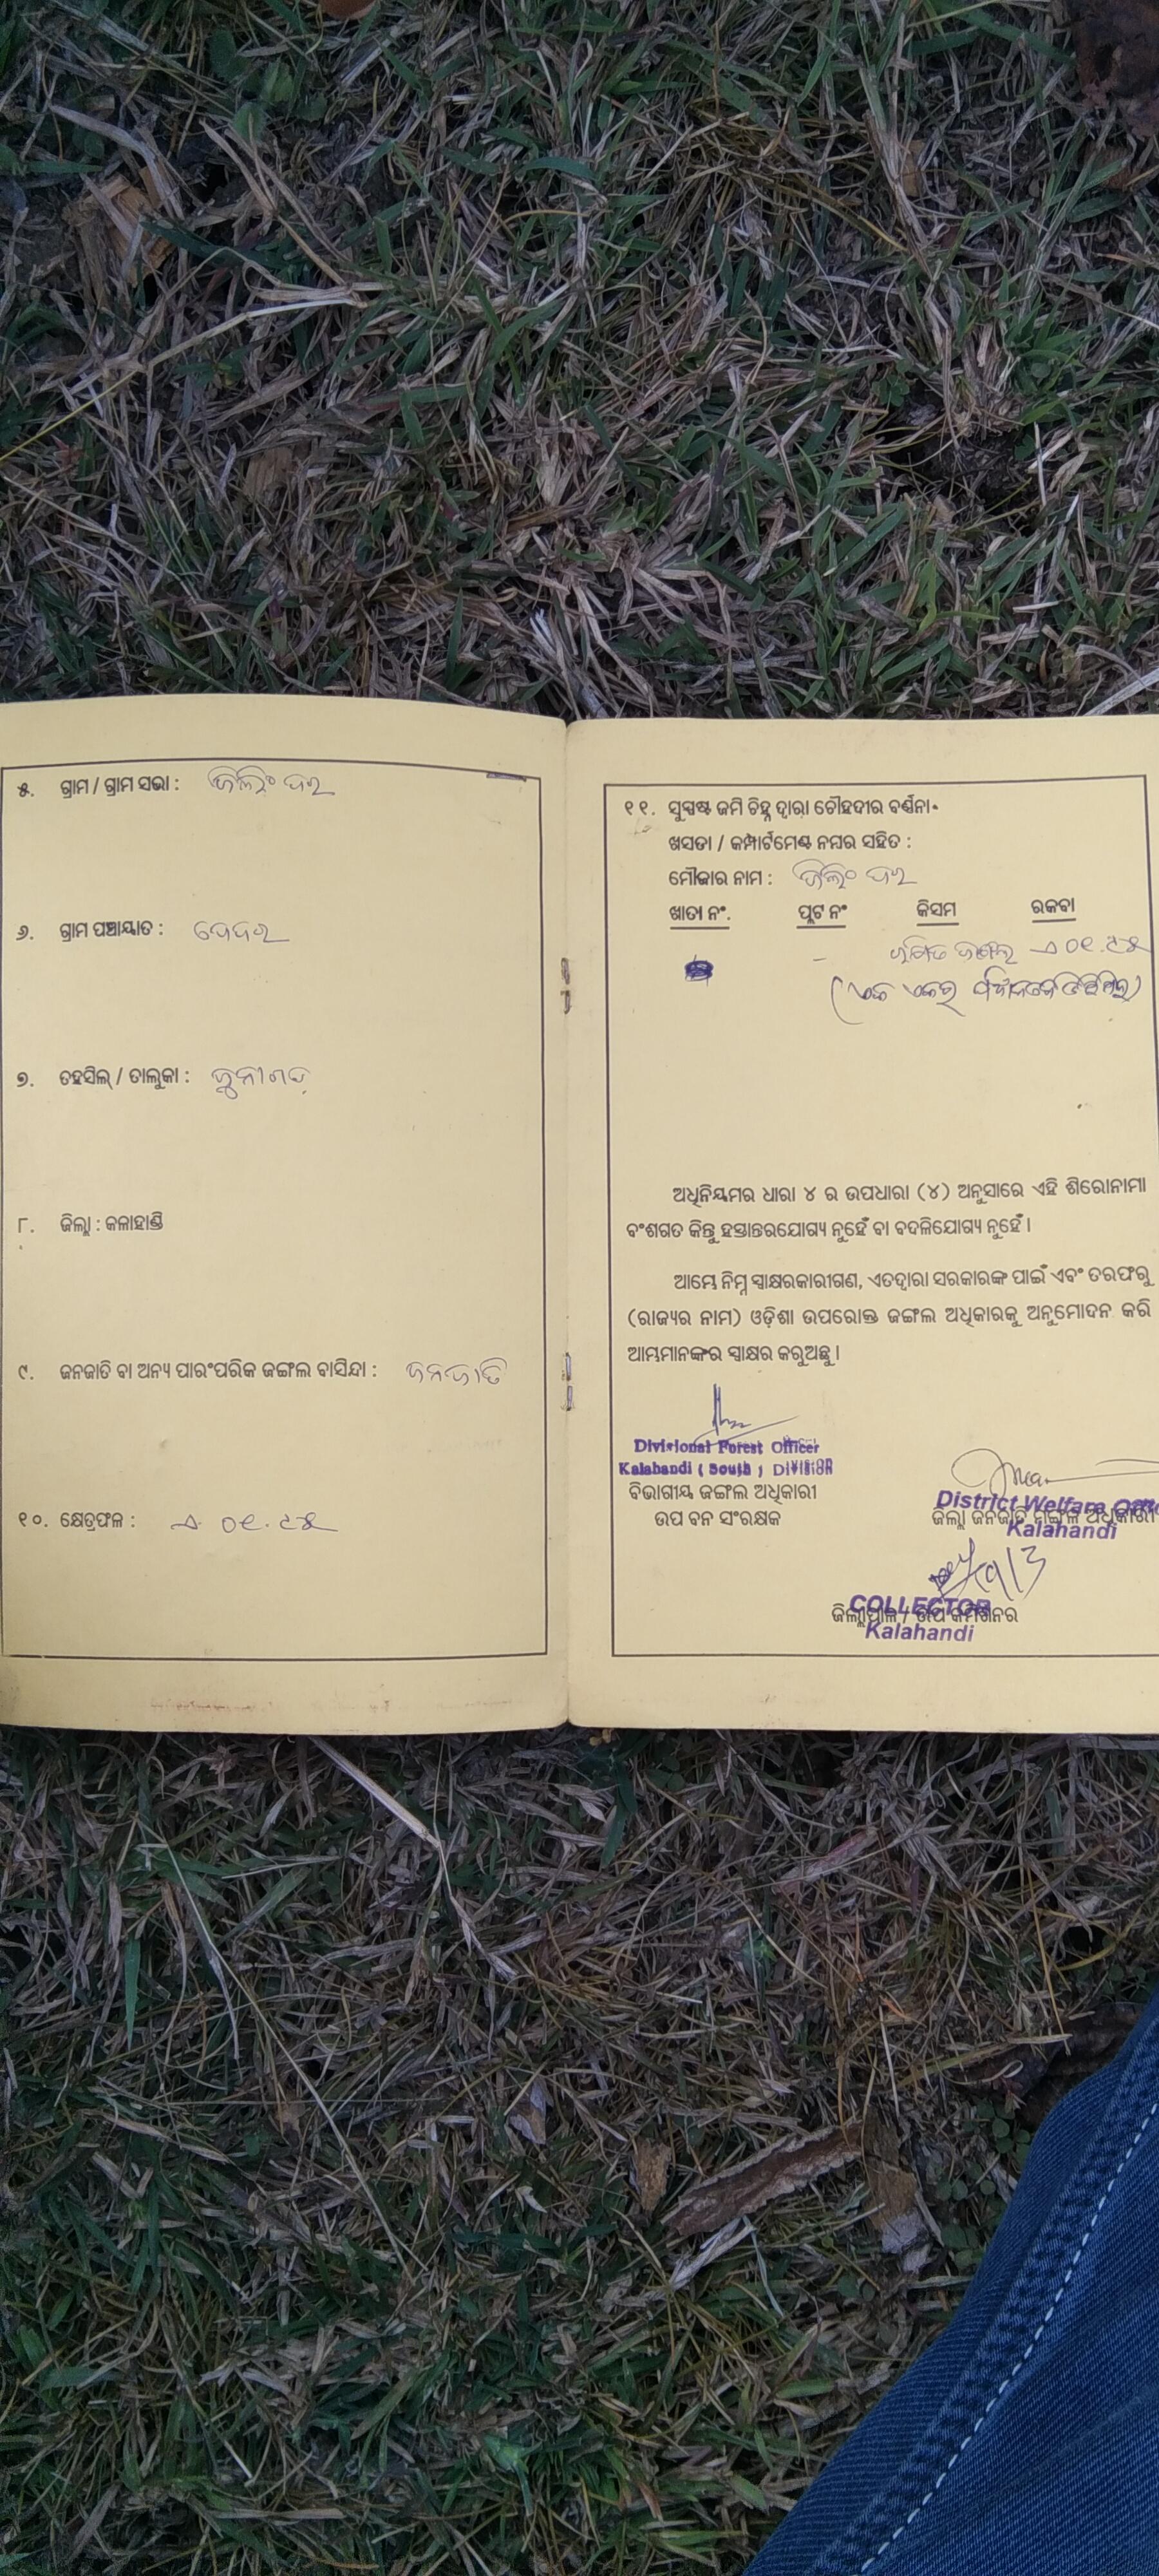 ୫. ଗ୍ରାମ / ଗ୍ରାମ ସଭା : ଜିଲିଂ ଦର
୬. ଗ୍ରାମ ପଞ୍ଚାୟାତ : ଦେଦର
୭. ତହସିଲ୍ / ତାଲୁକା : ଜୁନାଗଡ଼
୮. ଜିଲ୍ଲା : କଳାହାଣ୍ଡି
୯. ଜନଜାତି ବା ଅନ୍ୟ ପାରଂପରିକ ଜଙ୍ଗଲ ବାସିନ୍ଦା : ଜନଜାତି
୧୦. କ୍ଷେତ୍ରଫଳ :
୧୧. ସୁସ୍ପଷ୍ଟ ଜମି ଚିହ୍ନ ଦ୍ୱାରା ଚୌହଦ୍ଦୀର ବର୍ଣ୍ଣନା
ଖସଡା / କମ୍ପାର୍ଟମେଣ୍ଟ ନମ୍ବର ସହିତ :
ମୌଜାର ନାମ : ଜିଲିଂ ଦର
ଖାତା ନଂ. ପ୍ଲଟ ନଂ କିସମ ରକବା
ଜଙ୍ଗଲ
(ଏକ ଏକର
ଅଧିନିୟମର ଧାରା ୪ ର ଉପଧାରା (୪) ଅନୁସାରେ ଏହି ଶିରୋନାମା
ବଂଶଗତ କିନ୍ତୁ ହସ୍ତାନ୍ତରଯୋଗ୍ୟ ନୁହେଁ ବା ବଦଳିଯୋଗ୍ୟ ନୁହେଁ ।
ଆମ୍ଭେ ନିମ୍ନ ସ୍ୱାକ୍ଷରକାରୀଗଣ, ଏତଦ୍ୱାରା ସରକାରଙ୍କ ପାଇଁ ଏବଂ ତରଫରୁ
(ରାଜ୍ୟର ନାମ) ଓଡ଼ିଶା ଉପରୋକ୍ତ ଜଙ୍ଗଲ ଅଧିକାରକୁ ଅନୁମୋଦନ କରି
ଆମ୍ଭମାନଙ୍କର ସ୍ୱାକ୍ଷର କରୁଅଛୁ ।
Divisional Forest Officer
Kalahandi ( South ) DIVISION
ବିଭାଗୀୟ ଜଙ୍ଗଲ ଅଧିକାରୀ
ଉପ ବନ ସଂରକ୍ଷକ
District Welfare
ଜିଲ୍ଲା ଜନଜାତି ମଙ୍ଗଳ ଅଧିକାରୀ
Kalahandi
COLLECTOR
ଜିଲ୍ଲାପାଳ / ଉପ କମିଶନର
Kalahandi